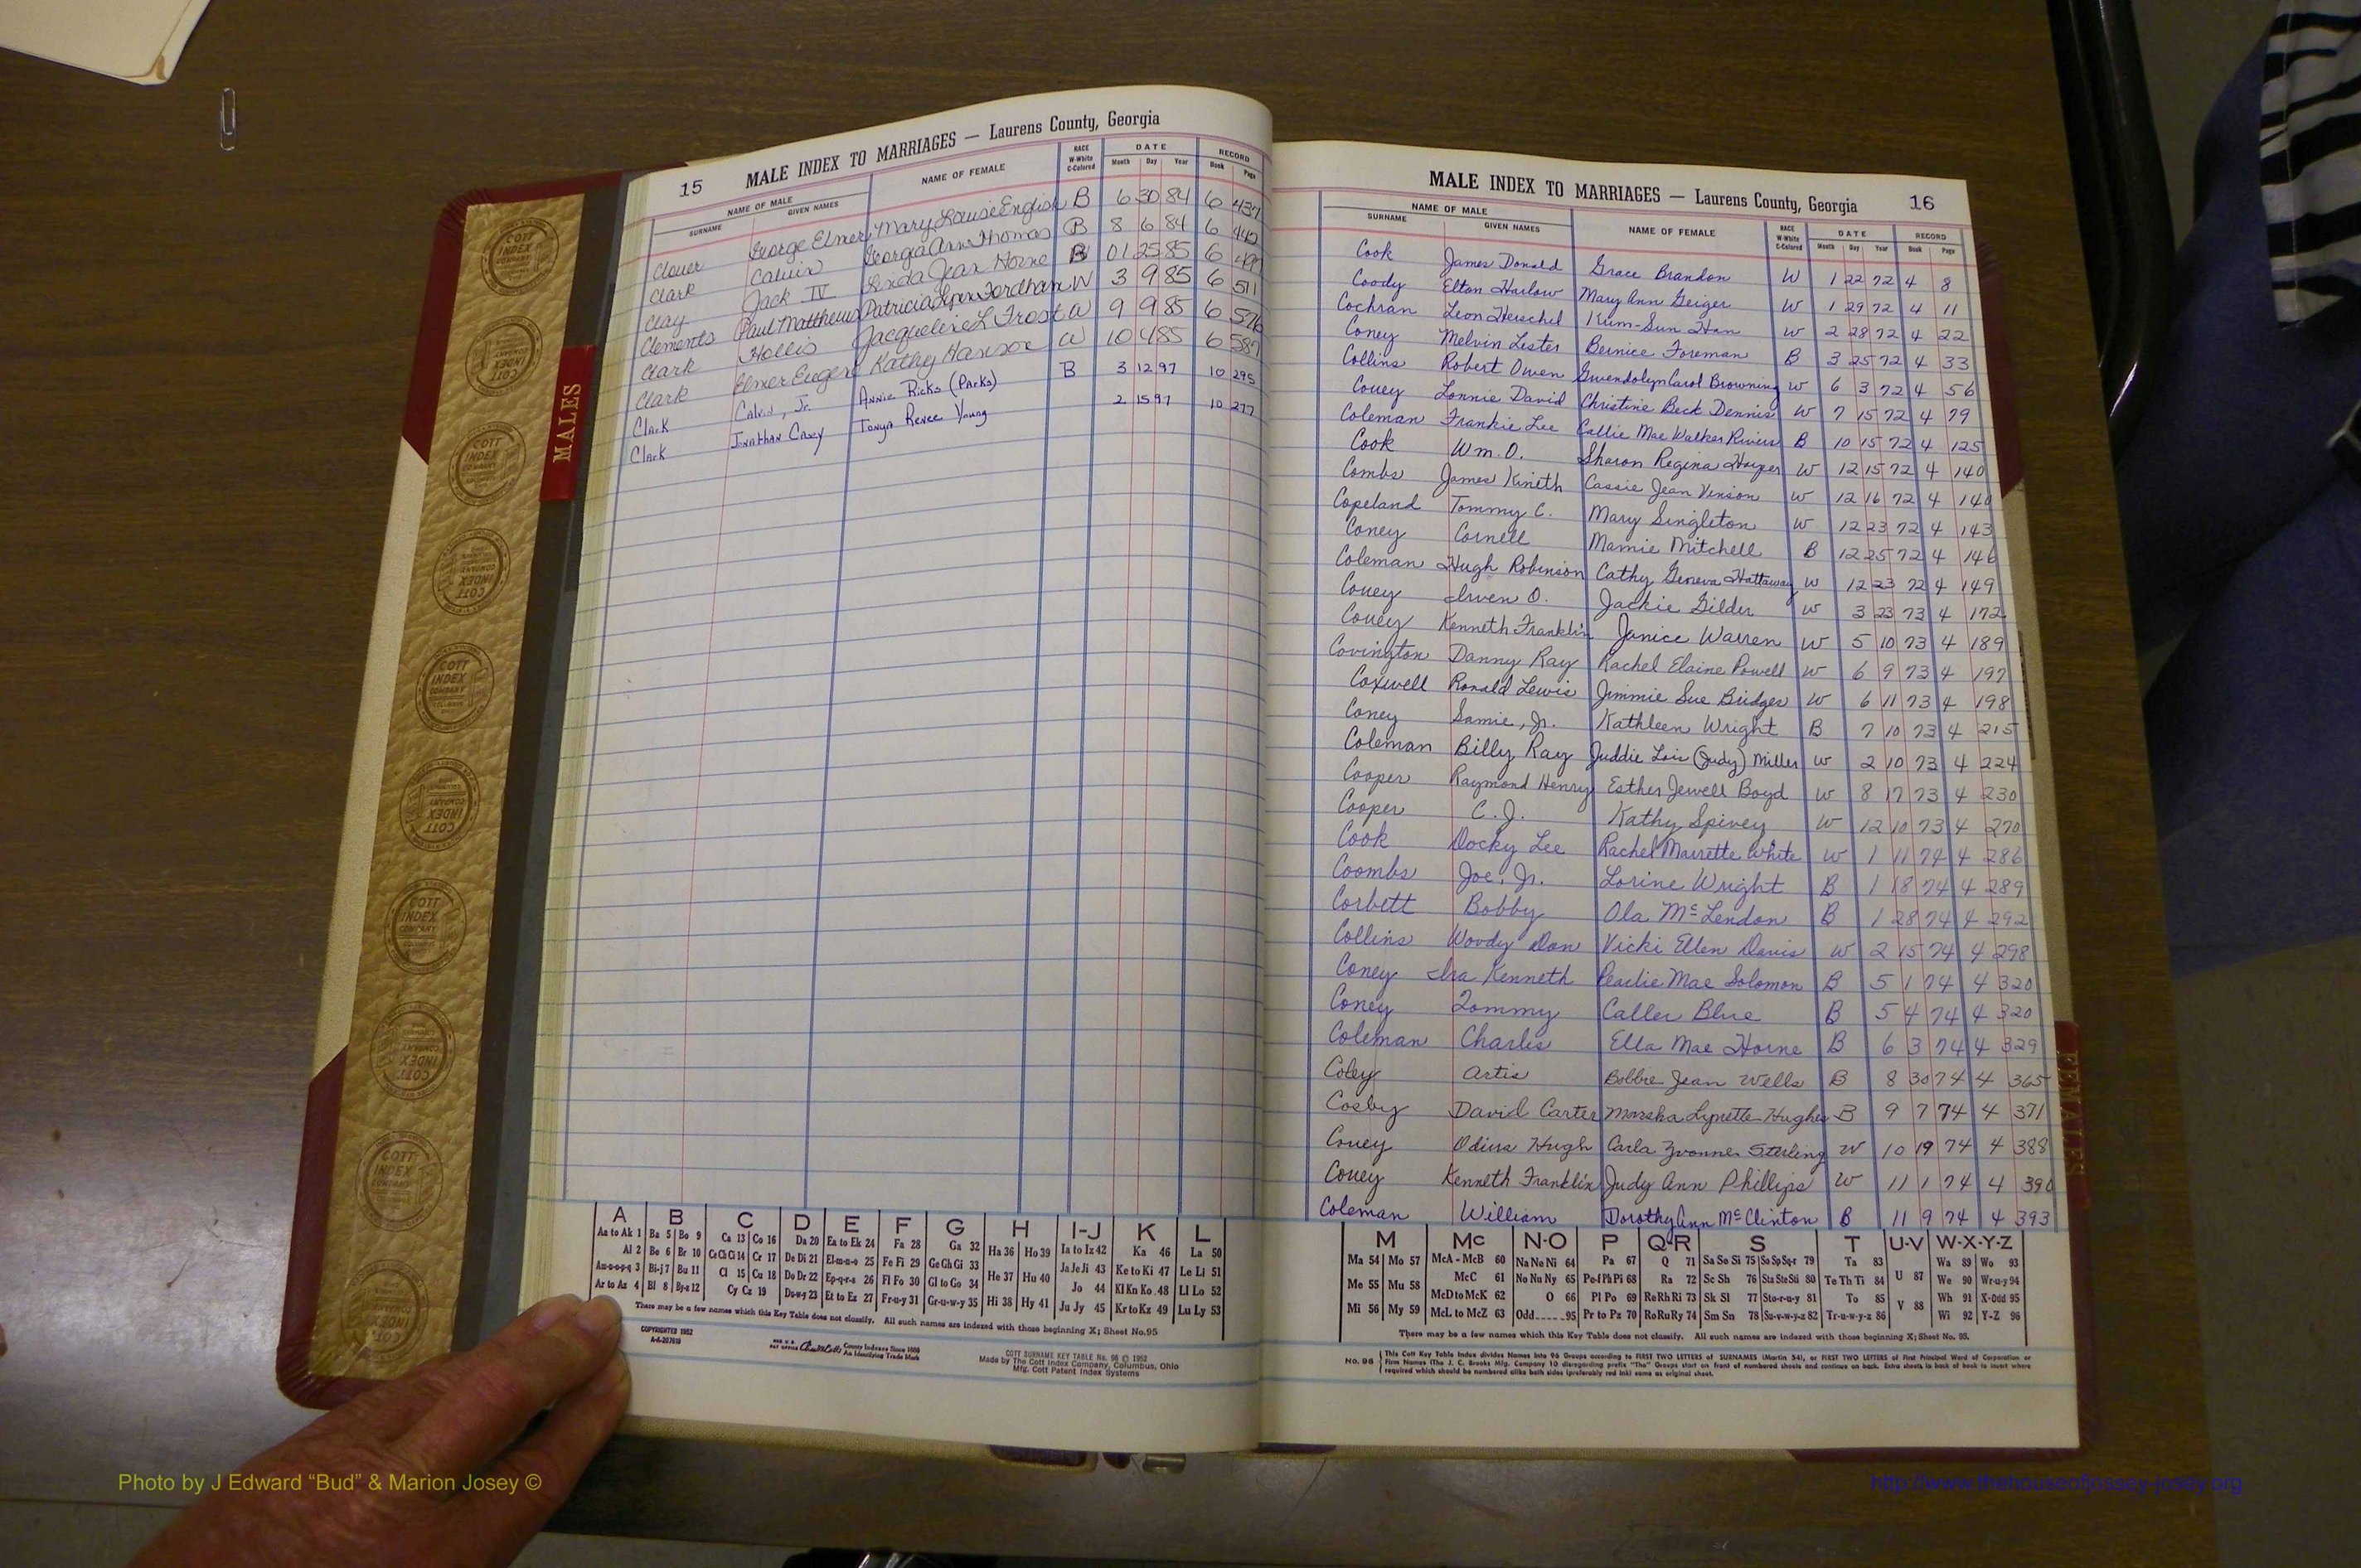 15 MALE INDEX TO MARRIAGES — Laurens County, Georgia
NAME OF MALE NAME OF FEMALE RACE W-White C-Colored DATE RECORD
SURNAME GIVEN NAMES Month Day Year Book Page
Clouer George Elmer Mary Louise English B 6 30 84 6 437
Clark Calvin Georgia Ann Thomas B 8 6 84 6 442
Clay Jack IV Linda Jean Horne B 01 25 85 6
Clements Paul Matthews Patricia Lynn Fordham W 3 9 85 6 511
Clark Hollis Jacqueline L Frost W 9 9 85 6 576
Clark Elmer Eugene Kathy Hanson W 10 4 85 6 587
Clark Calvin, Jr. Annie Ricks (Parks) B 3 12 97 10 295
Clark Jonathan Casey Tonya Renee Young 2 15 97 10 277
A B C D E F G H I-J K L
Aa to Ak 1 Ba 5 Bo 9 Ca 13 Co 16 Da 20 Ea to Ek 24 Fa 28 Ga 32 Ha 36 Ho 39 Ia to Iz 42 Ka 46 La 50
Al 2 Be 6 Br 10 Ce Ch Ci 14 Cr 17 De Di 21 El-m-n-o 25 Fe Fi 29 Ge Gh Gi 33 He 37 Hu 40 Ja Je Ji 43 Ke to Ki 47 Le Li 51
Am-n-o-p-q 3 Bi-j 7 Bu 11 Cl 15 Cu 18 Do Dr 22 Ep-q-r-s 26 Fl Fo 30 Gl to Go 34 Hi 38 Hy 41 Jo 44 Kl Kn Ko 48 Ll Lo 52
Ar to Az 4 Bl 8 By-z 12 Cy Cz 19 Du-w-y 23 Et to Ez 27 Fr-u-y 31 Gr-u-w-y 35 Ju Jy 45 Kr to Kz 49 Lu Ly 53
There may be a few names which this Key Table does not classify. All such names are indexed with those beginning X; Sheet No. 95
COPYRIGHTED 1952
COTT SURNAME KEY TABLE No. 96 © 1952
Made by The Cott Index Company, Columbus, Ohio
Mfg. Cott Patent Index Systems
County Indexes Since 1888
An Identifying Trade Mark
MALES
COTT INDEX COMPANY
MALE INDEX TO MARRIAGES — Laurens County, Georgia 16
NAME OF MALE NAME OF FEMALE RACE W-White C-Colored DATE RECORD
SURNAME GIVEN NAMES Month Day Year Book Page
Cook James Donald Grace Brandon W 1 22 72 4 8
Coody Elton Harlow Mary Ann Geiger W 1 29 72 4 11
Cochran Leon Herschel Kum-Sun Han W 2 28 72 4 22
Coney Melvin Lester Bernice Foreman B 3 25 72 4 33
Collins Robert Owen Gwendolyn Carol Browning W 6 3 72 4 56
Couey Lonnie David Christine Beck Dennis W 7 15 72 4 79
Coleman Frankie Lee Callie Mae Walker Rivers B 10 15 72 4 125
Cook Wm. O. Sharon Regina Harper W 12 15 72 4 140
Combs James Kineth Cassie Jean Vinson W 12 16 72 4 140
Copeland Tommy C. Mary Singleton W 12 23 72 4 143
Coney Cornell Mamie Mitchell B 12 25 72 4 146
Coleman Hugh Robinson Cathy Geneva Hattaway W 12 23 72 4 149
Couey Irven O. Jackie Gilder W 3 23 73 4 172
Couey Kenneth Franklin Janice Warren W 5 10 73 4 189
Covington Danny Ray Rachel Elaine Powell W 6 9 73 4 197
Coxwell Ronald Lewis Jimmie Sue Bridges W 6 11 73 4 198
Coney Samie, Jr. Kathleen Wright B 7 10 73 4 215
Coleman Billy Ray Juddie Lois (Judy) Miller W 2 10 73 4 224
Cooper Raymond Henry Esther Jewell Boyd W 8 17 73 4 230
Cooper C. J. Kathy Spivey W 12 10 73 4 270
Cook Docky Lee Rachel Maurette White W 1 11 74 4 286
Coombs Joe, Jr. Lorine Wright B 1 18 74 4 289
Corbett Bobby Ola McLendon B 1 28 74 4 292
Collins Woody Don Vicki Ellen Davis W 2 15 74 4 298
Coney Ira Kenneth Pearlie Mae Solomon B 5 1 74 4 320
Coney Tommy Caller Blue B 5 4 74 4 320
Coleman Charles Ella Mae Horne B 6 3 74 4 329
Coley Artis Bobbie Jean Wells B 8 30 74 4 365
Cosby David Carter Marsha Lynette Hughes B 9 7 74 4 371
Couey Odius Hugh Carla Yvonne Sterling W 10 19 74 4 388
Couey Kenneth Franklin Judy Ann Phillips W 11 1 74 4 390
Coleman William Dorothy Ann McClinton B 11 9 74 4 393
M Mc N-O P Q-R S T U-V W-X-Y-Z
Ma 54 Mo 57 McA - McB 60 Na Ne Ni 64 Pa 67 Q 71 Sa Se Si 75 So Sp Sq-r 79 Ta 83 U 87 Wa 89 Wo 93
Me 55 Mu 58 McC 61 No Nu Ny 65 Pe-f Ph Pi 68 Ra 72 Sc Sh 76 Sta Ste Sti 80 Te Th Ti 84 We 90 Wr-u-y 94
Mi 56 My 59 McD to McK 62 O 66 Pl Po 69 Re Rh Ri 73 Sk Sl 77 Sto-r-u-y 81 To 85 V 88 Wh 91 X-Odd 95
McL to McZ 63 Odd 95 Pr to Pz 70 Ro Ru Ry 74 Sm Sn 78 Su-v-w-y-z 82 Tr-u-w-y-z 86 Wi 92 Y-Z 96
There may be a few names which this Key Table does not classify. All such names are indexed with those beginning X; Sheet No. 95.
No. 96 This Cott Key Table Index divides Names into 96 Groups according to FIRST TWO LETTERS of SURNAMES (Martin 54), or FIRST TWO LETTERS of First Principal Word of Corporation or
Firm Names (The J. C. Brooks Mfg. Company 10 disregarding prefix "The" Groups start on front of numbered sheets and continue on back. Extra sheets in back of book to insert where
required which should be numbered alike both sides (preferably red ink) same as original sheet.
FEMALES
Photo by J Edward “Bud” & Marion Josey ©
http://www.thehouseofjossey-josey.org